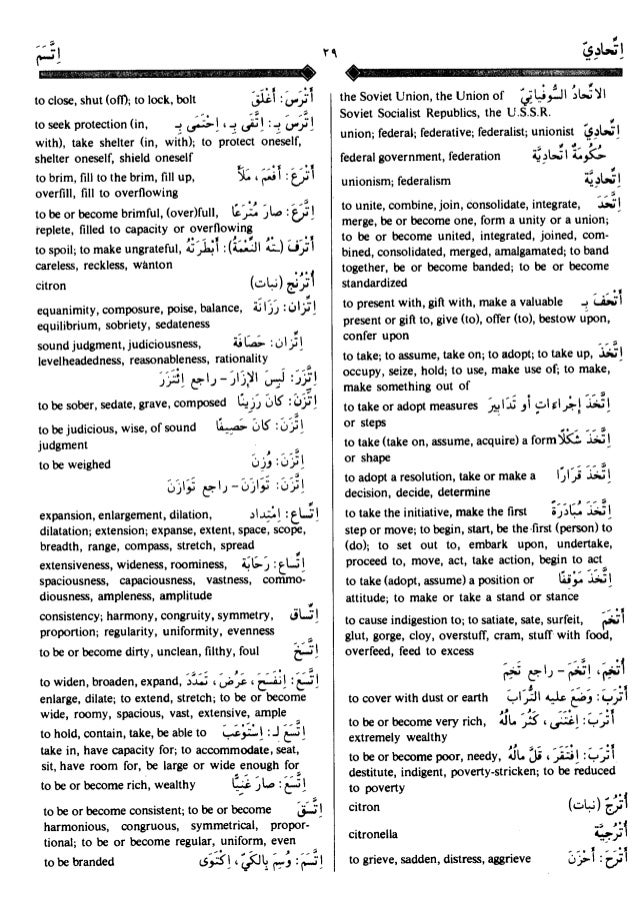 اِتِّحادِيّ ٢٩ اِتَّسَمَ
الاتِّحادُ السُّوفْيَاتِيّ the Soviet Union, the Union of
Soviet Socialist Republics, the U.S.S.R.
اِتِّحادِيّ union; federal; federative; federalist; unionist
حُكُومَةٌ اتِّحادِيَّة federal government, federation
اِتِّحادِيَّة unionism; federalism
اِتَّحَدَ to unite, combine, join, consolidate, integrate,
merge, be or become one, form a unity or a union;
to be or become united, integrated, joined, com-
bined, consolidated, merged, amalgamated; to band
together, be or become banded; to be or become
standardized
أَتْحَفَ بِـ to present with, gift with, make a valuable
present or gift to, give (to), offer (to), bestow upon,
confer upon
اِتَّخَذَ to take; to assume, take on; to adopt; to take up,
occupy, seize, hold; to use, make use of; to make,
make something out of
اِتَّخَذَ إجْراءاتٍ أو تَدَابِيرَ to take or adopt measures
or steps
اِتَّخَذَ شَكْلًا to take (take on, assume, acquire) a form
or shape
اِتَّخَذَ قَرَارًا to adopt a resolution, take or make a
decision, decide, determine
اِتَّخَذَ مُبادَرَةً to take the initiative, make the first
step or move; to begin, start, be the first (person) to
(do); to set out to, embark upon, undertake,
proceed to, move, act, take action, begin to act
اِتَّخَذَ مَوْقِفًا to take (adopt, assume) a position or
attitude; to make or take a stand or stance
أَتْخَمَ to cause indigestion to; to satiate, sate, surfeit,
glut, gorge, cloy, overstuff, cram, stuff with food,
overfeed, feed to excess
أُتْخِمَ، اِتَّخَمَ - راجع تَخِمَ
أَتْرَبَ: وَضَعَ عليه التُّرَابَ to cover with dust or earth
أَتْرَبَ: اِغْتَنَى، كَثُرَ مالُهُ to be or become very rich,
extremely wealthy
أَتْرَبَ: اِفْتَقَرَ، قَلَّ مالُهُ to be or become poor, needy,
destitute, indigent, poverty-stricken; to be reduced
to poverty
أُتْرُجّ (نبات) citron
أُتْرُجِّيَّة citronella
أَتْرَحَ: أَحْزَنَ to grieve, sadden, distress, aggrieve
أَتْرَسَ: أَغْلَقَ to close, shut (off); to lock, bolt
اِتَّرَسَ بِـ: اِتَّقَى بِـ، اِحْتَمَى بِـ to seek protection (in,
with), take shelter (in, with); to protect oneself,
shelter oneself, shield oneself
أَتْرَعَ: أَفْعَمَ، مَلأَ to brim, fill to the brim, fill up,
overfill, fill to overflowing
اِتَّرَعَ: صارَ مُتْرَعًا to be or become brimful, (over)full,
replete, filled to capacity or overflowing
أَتْرَفَ (ـتْهُ النِّعْمَةُ): أَبْطَرَتْهُ to spoil; to make ungrateful,
careless, reckless, wanton
أُتْرُنْج (نبات) citron
اِتِّزان: رَزَانَة equanimity, composure, poise, balance,
equilibrium, sobriety, sedateness
اِتِّزان: حَصَافَة sound judgment, judiciousness,
levelheadedness, reasonableness, rationality
اِتَّزَرَ: لَبِسَ الإزَارَ - راجع اِئْتَزَرَ
اِتَّزَنَ: كانَ رَزِينًا to be sober, sedate, grave, composed
اِتَّزَنَ: كانَ حَصِيفًا to be judicious, wise, of sound
judgment
اِتَّزَنَ: وُزِنَ to be weighed
اِتَّزَنَ: تَوَازَنَ - راجع تَوَازَنَ
اِتِّساع: اِمْتِداد expansion, enlargement, dilation,
dilatation; extension; expanse, extent, space, scope,
breadth, range, compass, stretch, spread
اِتِّساع: رَحَابَة extensiveness, wideness, roominess,
spaciousness, capaciousness, vastness, commo-
diousness, ampleness, amplitude
اِتِّساق consistency; harmony, congruity, symmetry,
proportion; regularity, uniformity, evenness
اِتَّسَخَ to be or become dirty, unclean, filthy, foul
اِتَّسَعَ: اِنْفَسَحَ، عَرُضَ، تَمَدَّدَ to widen, broaden, expand,
enlarge, dilate; to extend, stretch; to be or become
wide, roomy, spacious, vast, extensive, ample
اِتَّسَعَ لِـ: اِسْتَوْعَبَ to hold, contain, take, be able to
take in, have capacity for; to accommodate, seat,
sit, have room for, be large or wide enough for
اِتَّسَعَ: صارَ غَنِيًّا to be or become rich, wealthy
اِتَّسَقَ to be or become consistent; to be or become
harmonious, congruous, symmetrical, propor-
tional; to be or become regular, uniform, even
اِتَّسَمَ: وُسِمَ بِالكَيّ، اِكْتَوَى to be branded